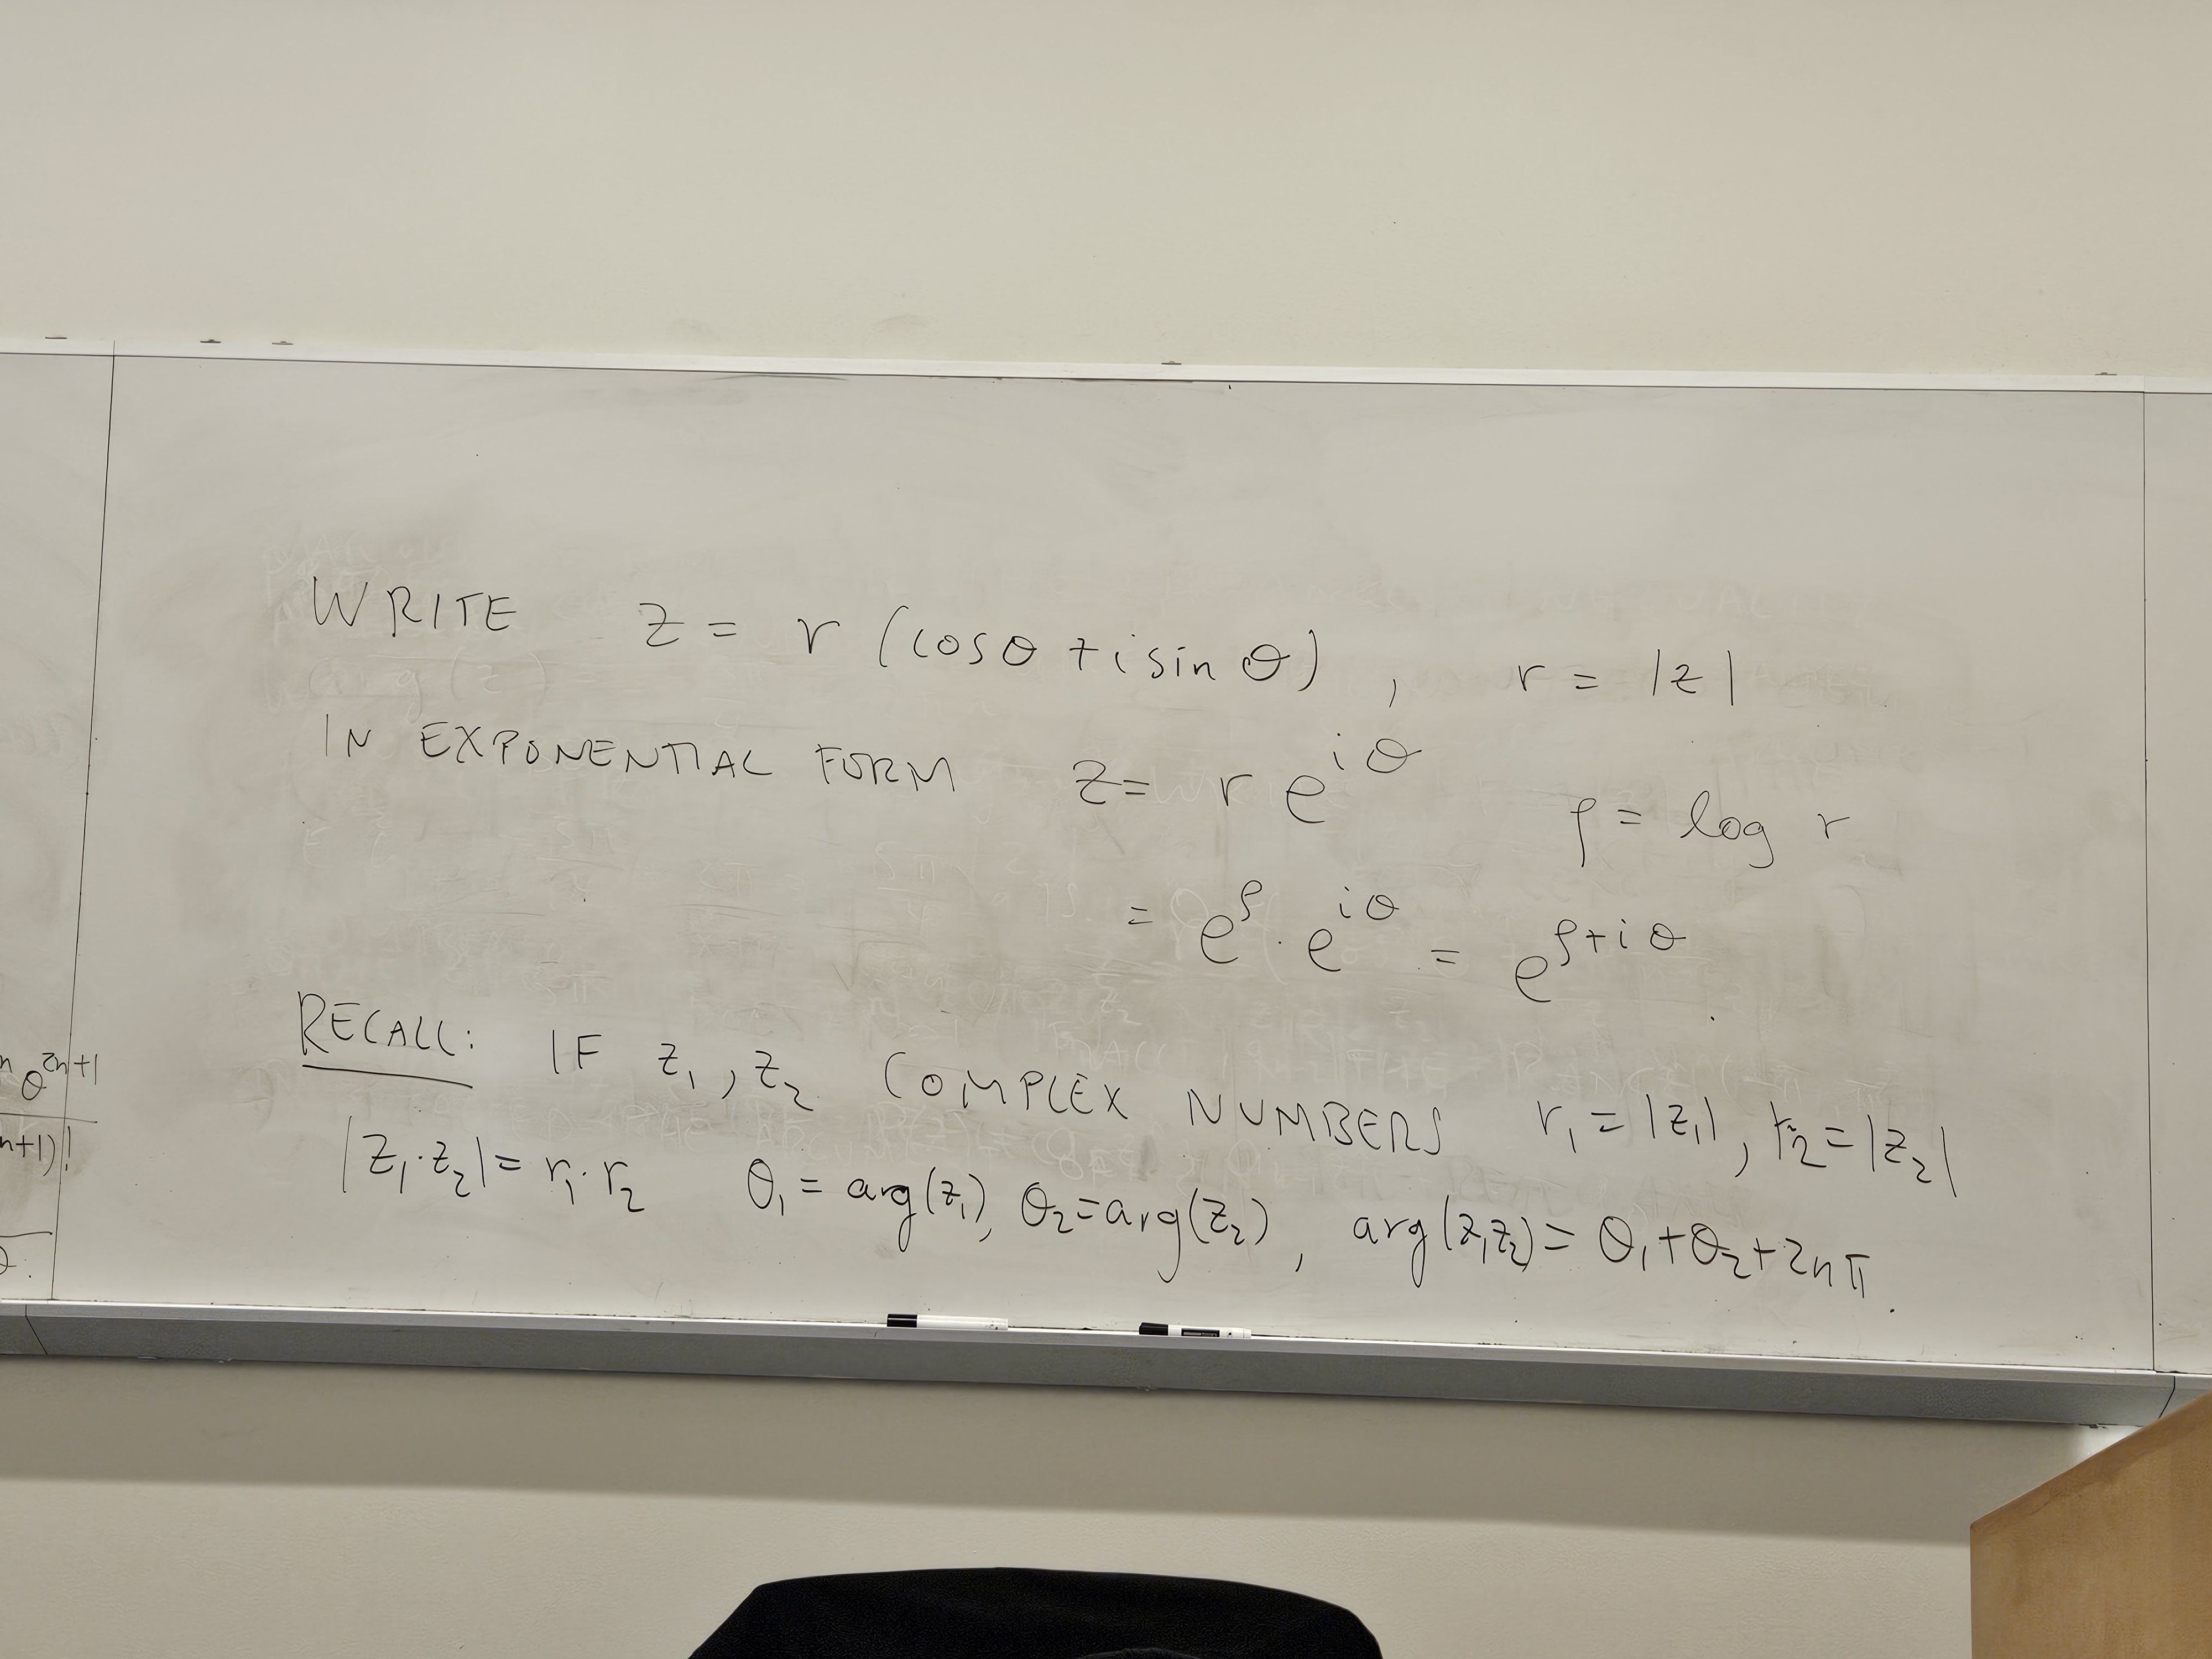 WRITE z = r (cosθ + i sin θ) , r = |z|
IN EXPONENTIAL FORM z = r e^{iθ} ρ = log r
= e^ρ · e^{iθ} = e^{ρ+iθ} .
RECALL: IF z₁, z₂ COMPLEX NUMBERS r₁ = |z₁|, r₂ = |z₂|
|z₁·z₂| = r₁·r₂ θ₁ = arg(z₁), θ₂ = arg(z₂), arg(z₁z₂) = θ₁+θ₂+2nπ.
n θ^{2n+1}
n+1)!